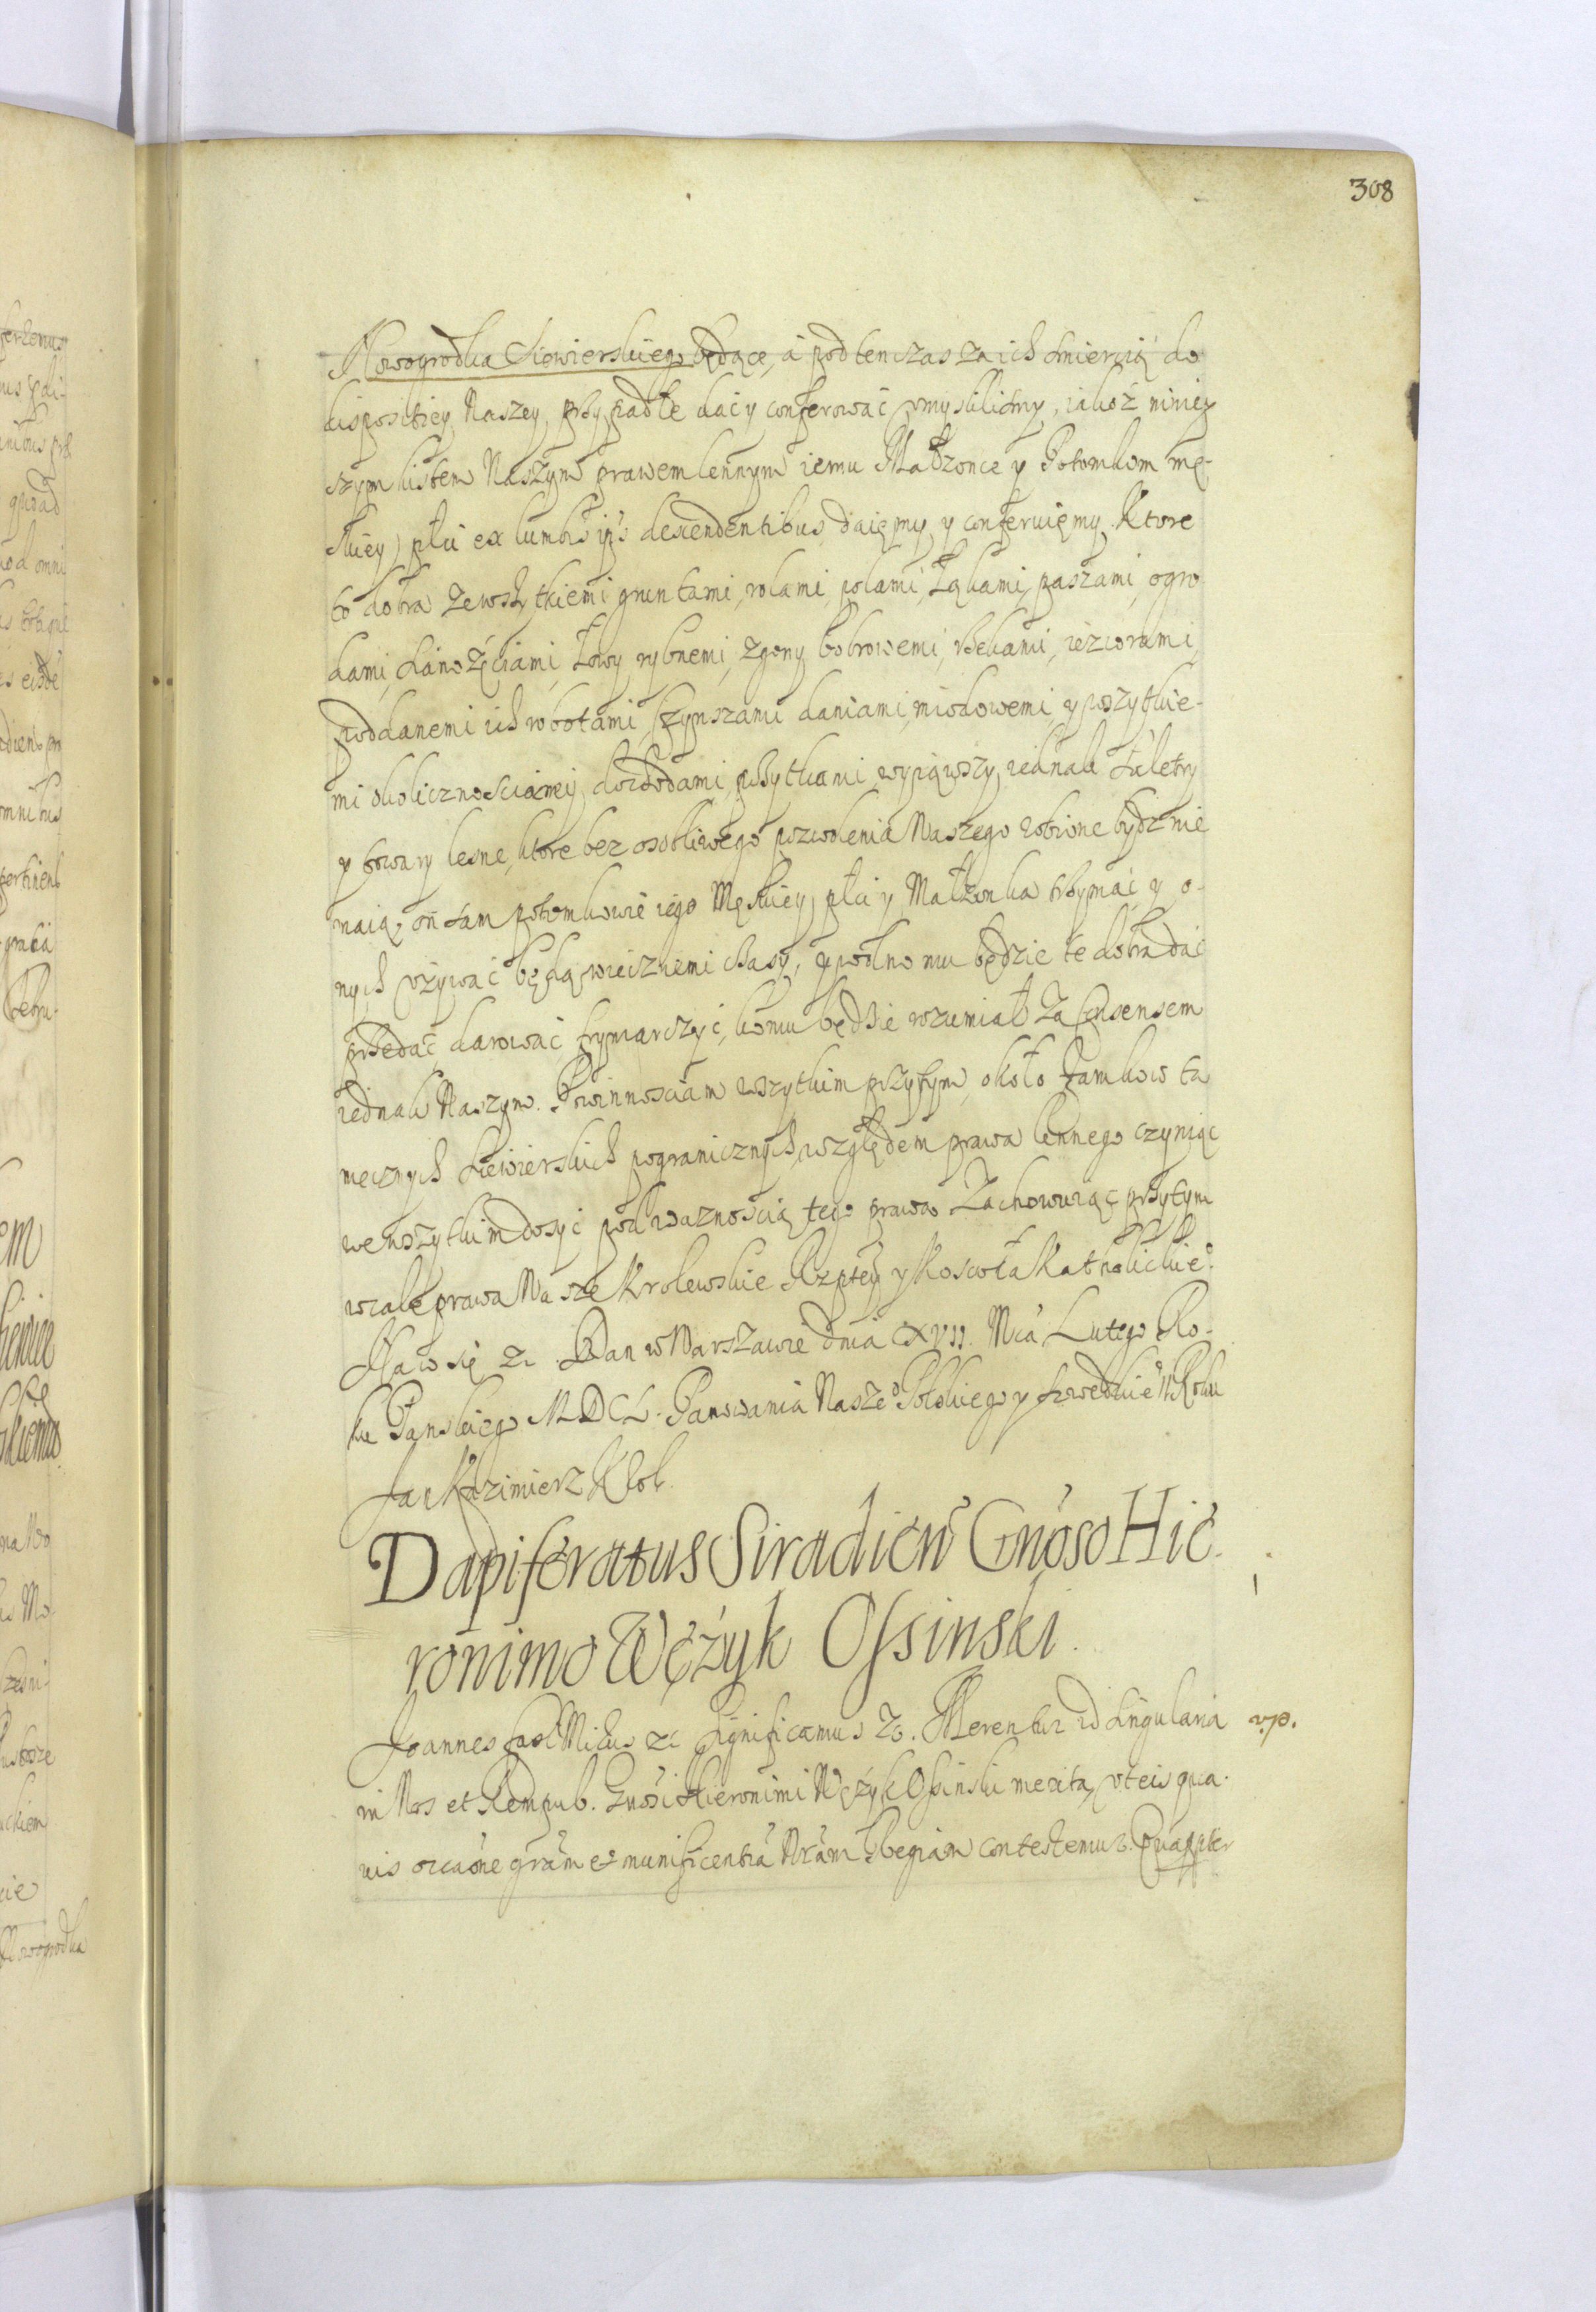 308
Nowogrodka Siewierskiego będące, a podten czas za ich śmiercią do
dispositiey Naszey przypadłe dać y conferować umyslilismy, iakoż niniey
szym listem Naszym prawem lennym iemu Małżonce y Potomkom mę-
skiey płci ex lumbis ips descendentibus daięmy y conferuięmy. Ktore
to dobra ze wszytkiemi gruntami, rolami, polami, Łąkami, paszami, ogro
dami, sianożęciami, Łowy rybnemi, zgony bobrowemi, rzekami, ieziorami,
poddanemi ich robotami, Czynszami daniami, miodowemi, y wszytkie-
mi okolicznosciami, dochodami, pożytkami wyiąwszy iednak saletry
y towary lesne, ktore bez osobliwego pozwolenia Naszego robione bydz nie
maią, on sam potomkowie iego Męskiey płci y Małżonka trzymać y o-
nych używać będą wiecznemi czasy, y wolno mu będzie te dobra dać
przedać, darować frymarczyć, komu będzie rozumiał za Consensem
iednak Naszym. Powinnosciam wszytkim przytym, około Zamkow ta
mecznych siewierskich pogranicznych, względem prawa lennego czyniąc
we wszytkim dosyć pod ważnoscią tego prawa. Zachowuiąc przytym
wcale prawa Nasze Krolewskie Rzptey y Koscioła Katholickieº.
Na co się &c. Dan w Warszawie dnia XVII. Mca Lutego Ro-
ku Panskiego MDCL. Panowania Naszeº Polskiego y szwedzkieº II Roku
Jan Kazimierz Krol.
Dapiferatus Siradien Gnoso Hie-
ronimo Wężyk Ossinski.
Joannes Casi Mirus &c Significamus &c. Merentur id singularia
in Nos et Rempub. Gnosi Hieronimi Wężyk Ossinski merita, ut eis qua-
vis occaōne grām et munificentiā Nrām Regiam contestemur. Quapptr